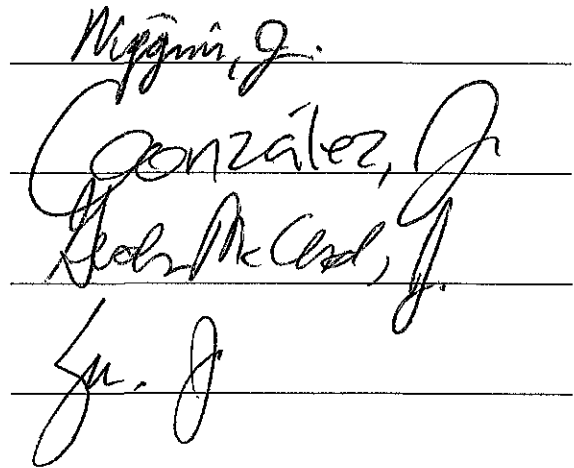 Wiggins, J.
González, J
Gordon McCloud, J.
Yu, J